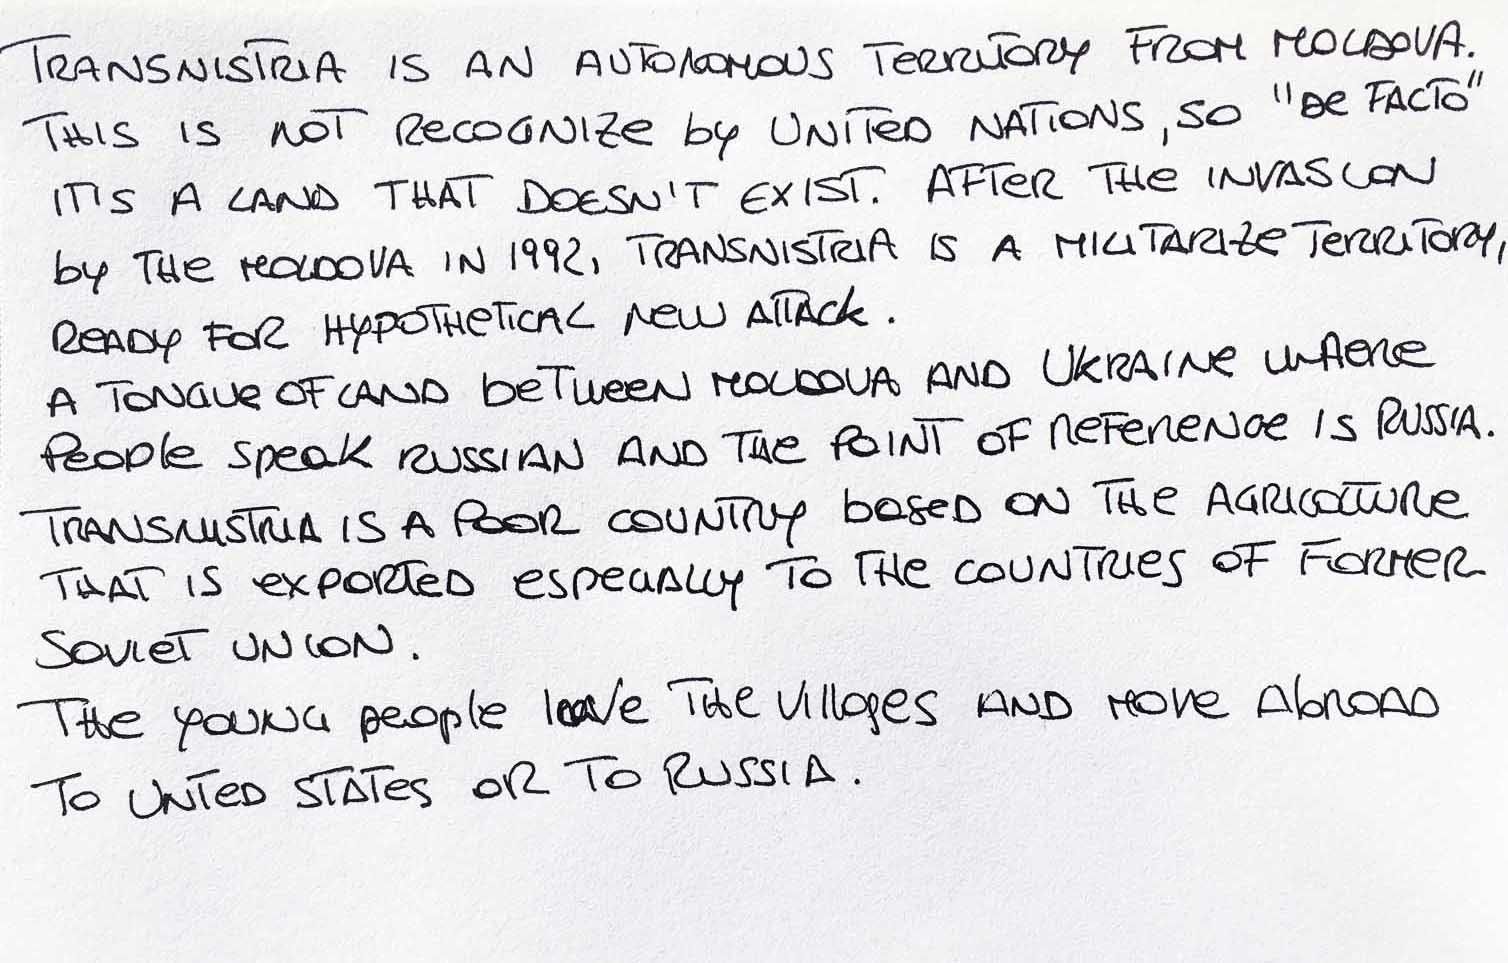 TRANSNISTRIA IS AN AUTONOMOUS TERRITORY FROM MOLDOVA.
THIS IS NOT RECOGNIZE by UNITED NATIONS, SO "DE FACTO"
IT'S A LAND THAT DOESN'T EXIST. AFTER THE INVASION
by THE MOLDOVA IN 1992, TRANSNISTRIA IS A MILITARIZE TERRITORY,
READY FOR HYPOTHETICAL NEW ATTACK.
A TONGUE OF LAND beTWEEN MOLDOVA AND UKRAINE WHERE
PEOPLE SPEAK RUSSIAN AND THE POINT OF REFERENCE IS RUSSIA.
TRANSNISTRIA IS A POOR COUNTRY bASED ON THE AGRICOLTURE
THAT IS EXPORTED ESPECIALLY TO THE COUNTRIES OF FORMER
SOVIET UNION.
THE YOUNG people leave THE VIllages AND MOVE AbROAD
TO UNITED STATES OR TO RUSSIA.